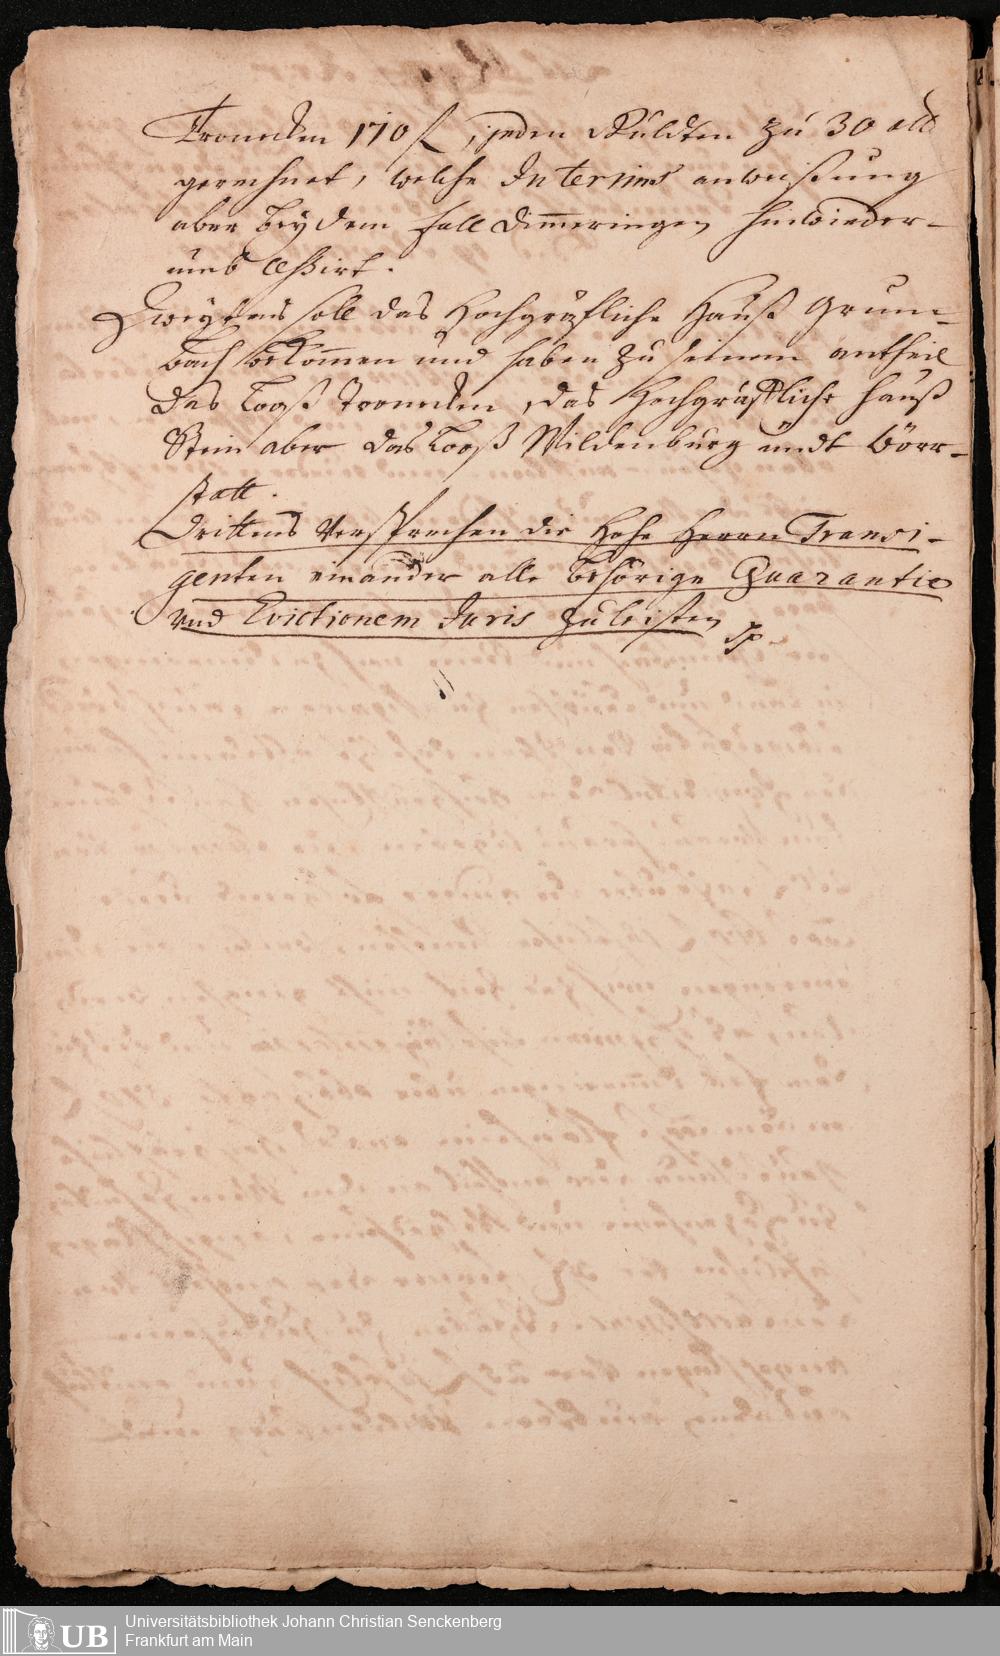 Tronecken 170 fl, jeden Gulden zu 30 alb
gerechnet, welche Interims anweißung
aber bey dem fall Dim̄eringen hinwieder-
umb Cessirt.
Zweytens soll das Hochgräfliche Hauß Grum-
bach bekom̄en und haben zu seinem antheil
das Looß Tronecken, das Hochgräffliche Hauß
Stein aber das Looß Wildenburg undt Börr-
statt.
Drittens Versprechen die Hohe Herrn Transi-
genten einander alle behörige Guarantie
und Evictionem Juris zu leisten
UB
Universitätsbibliothek Johann Christian Senckenberg
Frankfurt am Main